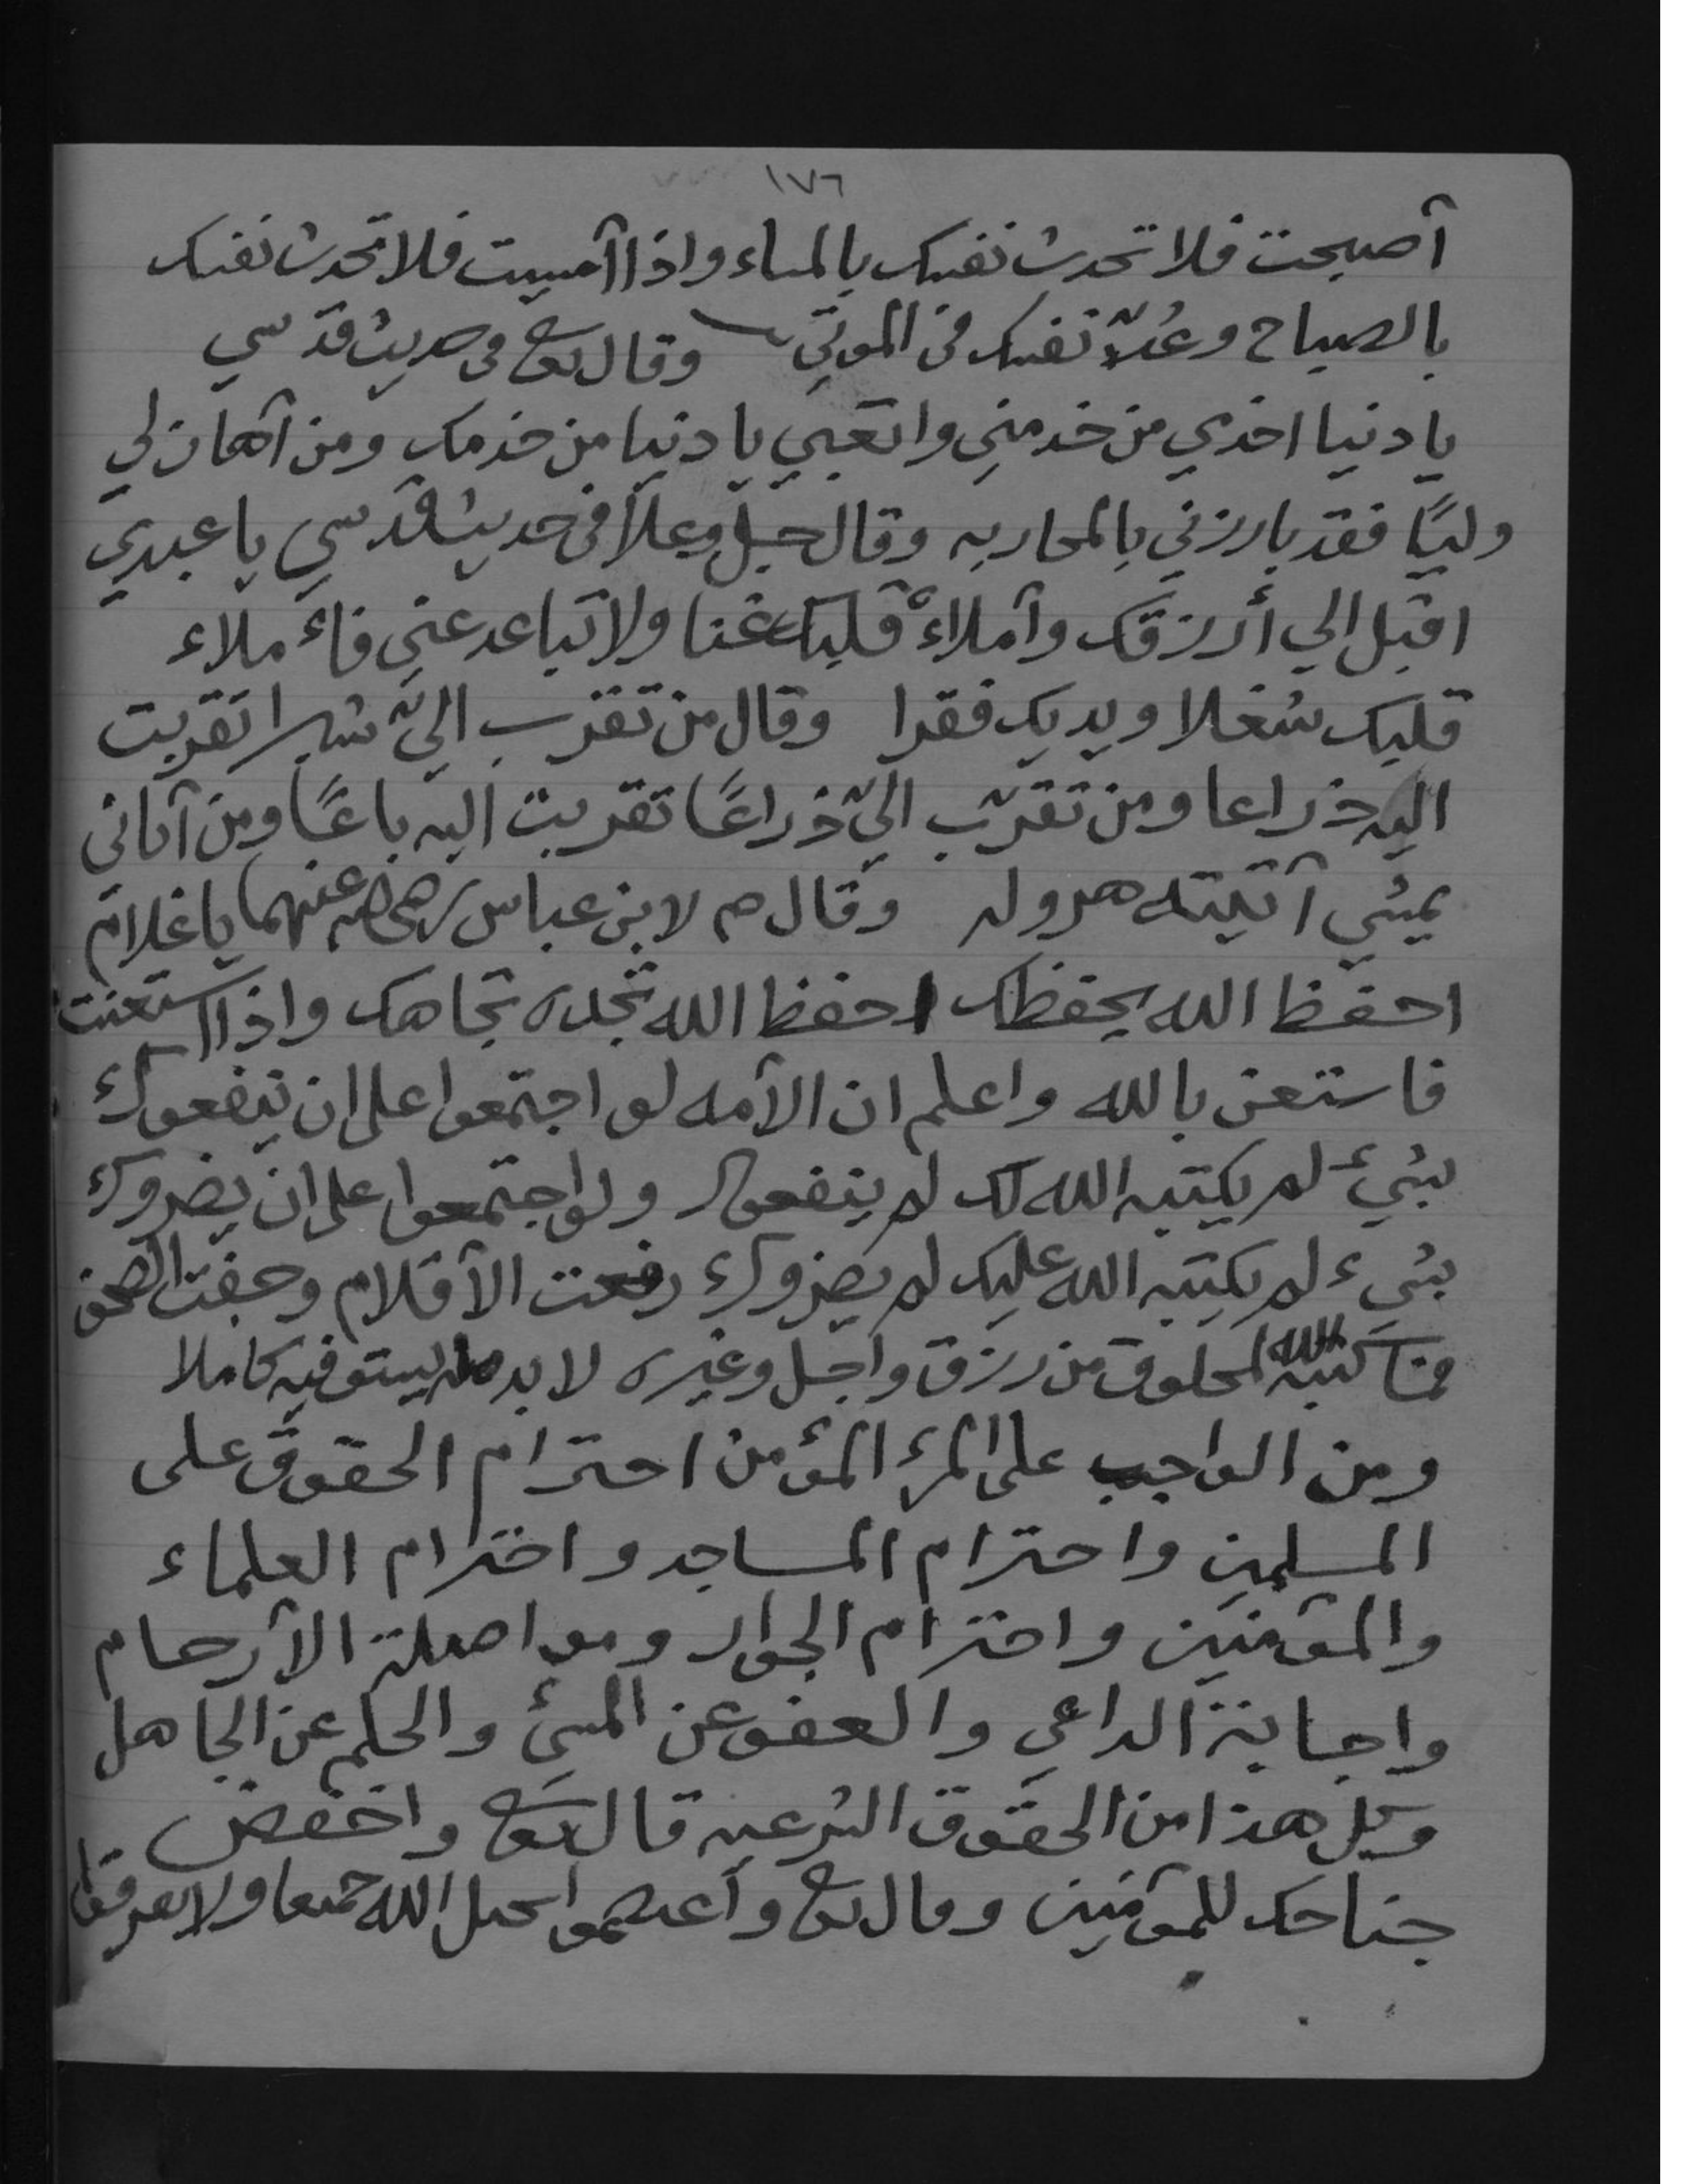 ١٧٦
آصبحت فلا تحدث نفسك بالمساء واذا آمسيت فلا تحدث نفسك
بالصباح وعُدّ نفسك في الموتى وقال تعالى في حديث قدسي
يا دنيا اخدمي من خدمني واتعبي يا دنيا من خدمك ومن آهان لي
وليًا فقد بارزني بالمحاربه وقال جل وعلا في حديث قدسي يا عبدي
اقبل الي أرزقك وآملاءُ قلبك غنا ولا تباعد عني فاءملاء
قلبك شغلا ويديك فقرا وقال من تقرب اليّ شبرا تقربت
اليه ذراعا ومن تقرّب اليّ ذراعًا تقربت اليه باعًا ومن آتاني
يمشي آتيته هروله وقال صم لابن عباس رضي الله عنهما يا غلام
احفظ الله يحفظك احفظ الله تجده تجاهك واذا استعنت
فاستعن بالله واعلم ان الآمه لو اجتمعوا على ان ينفعوك
بشيء لم يكتبه الله لك لم ينفعوك ولو اجتمعوا على ان يضروك
بشيء لم يكتبه الله عليك لم يضروك رفعت الآقلام وجفت الصحف
فما كتبه الله لمخلوق من رزق واجل وغيره لا بد يستوفيه كاملا
ومن الواجب على المرء المؤمن احترام الحقوق على
المسلمين واحترام المساجد واحترام العلماء
والمؤمنين واحترام الجوار ومواصلة الآرحام
واجابة الداعي والعفو عن المسئ والحلم عن الجاهل
وكل هذا من الحقوق الشرعيه قال تعالى واخفض
جناحك للمؤمنين وقال تعالى وآعتصموا بحبل الله جميعا ولا تفرقوا